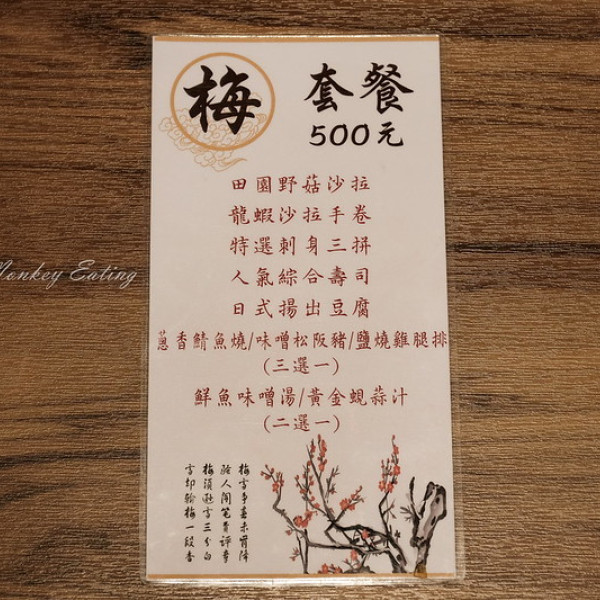 梅
套餐
500元
田園野菇沙拉
龍蝦沙拉手卷
特選刺身三拼
人氣綜合壽司
日式揚出豆腐
蔥香鯖魚燒/味噌松阪豬/鹽燒雞腿排
(三選一)
鮮魚味噌湯/黃金蜆蒜汁
(二選一)
梅雪爭春未肯降
騷人閣筆費評章
梅須遜雪三分白
雪却輸梅一段香
Monkey Eating